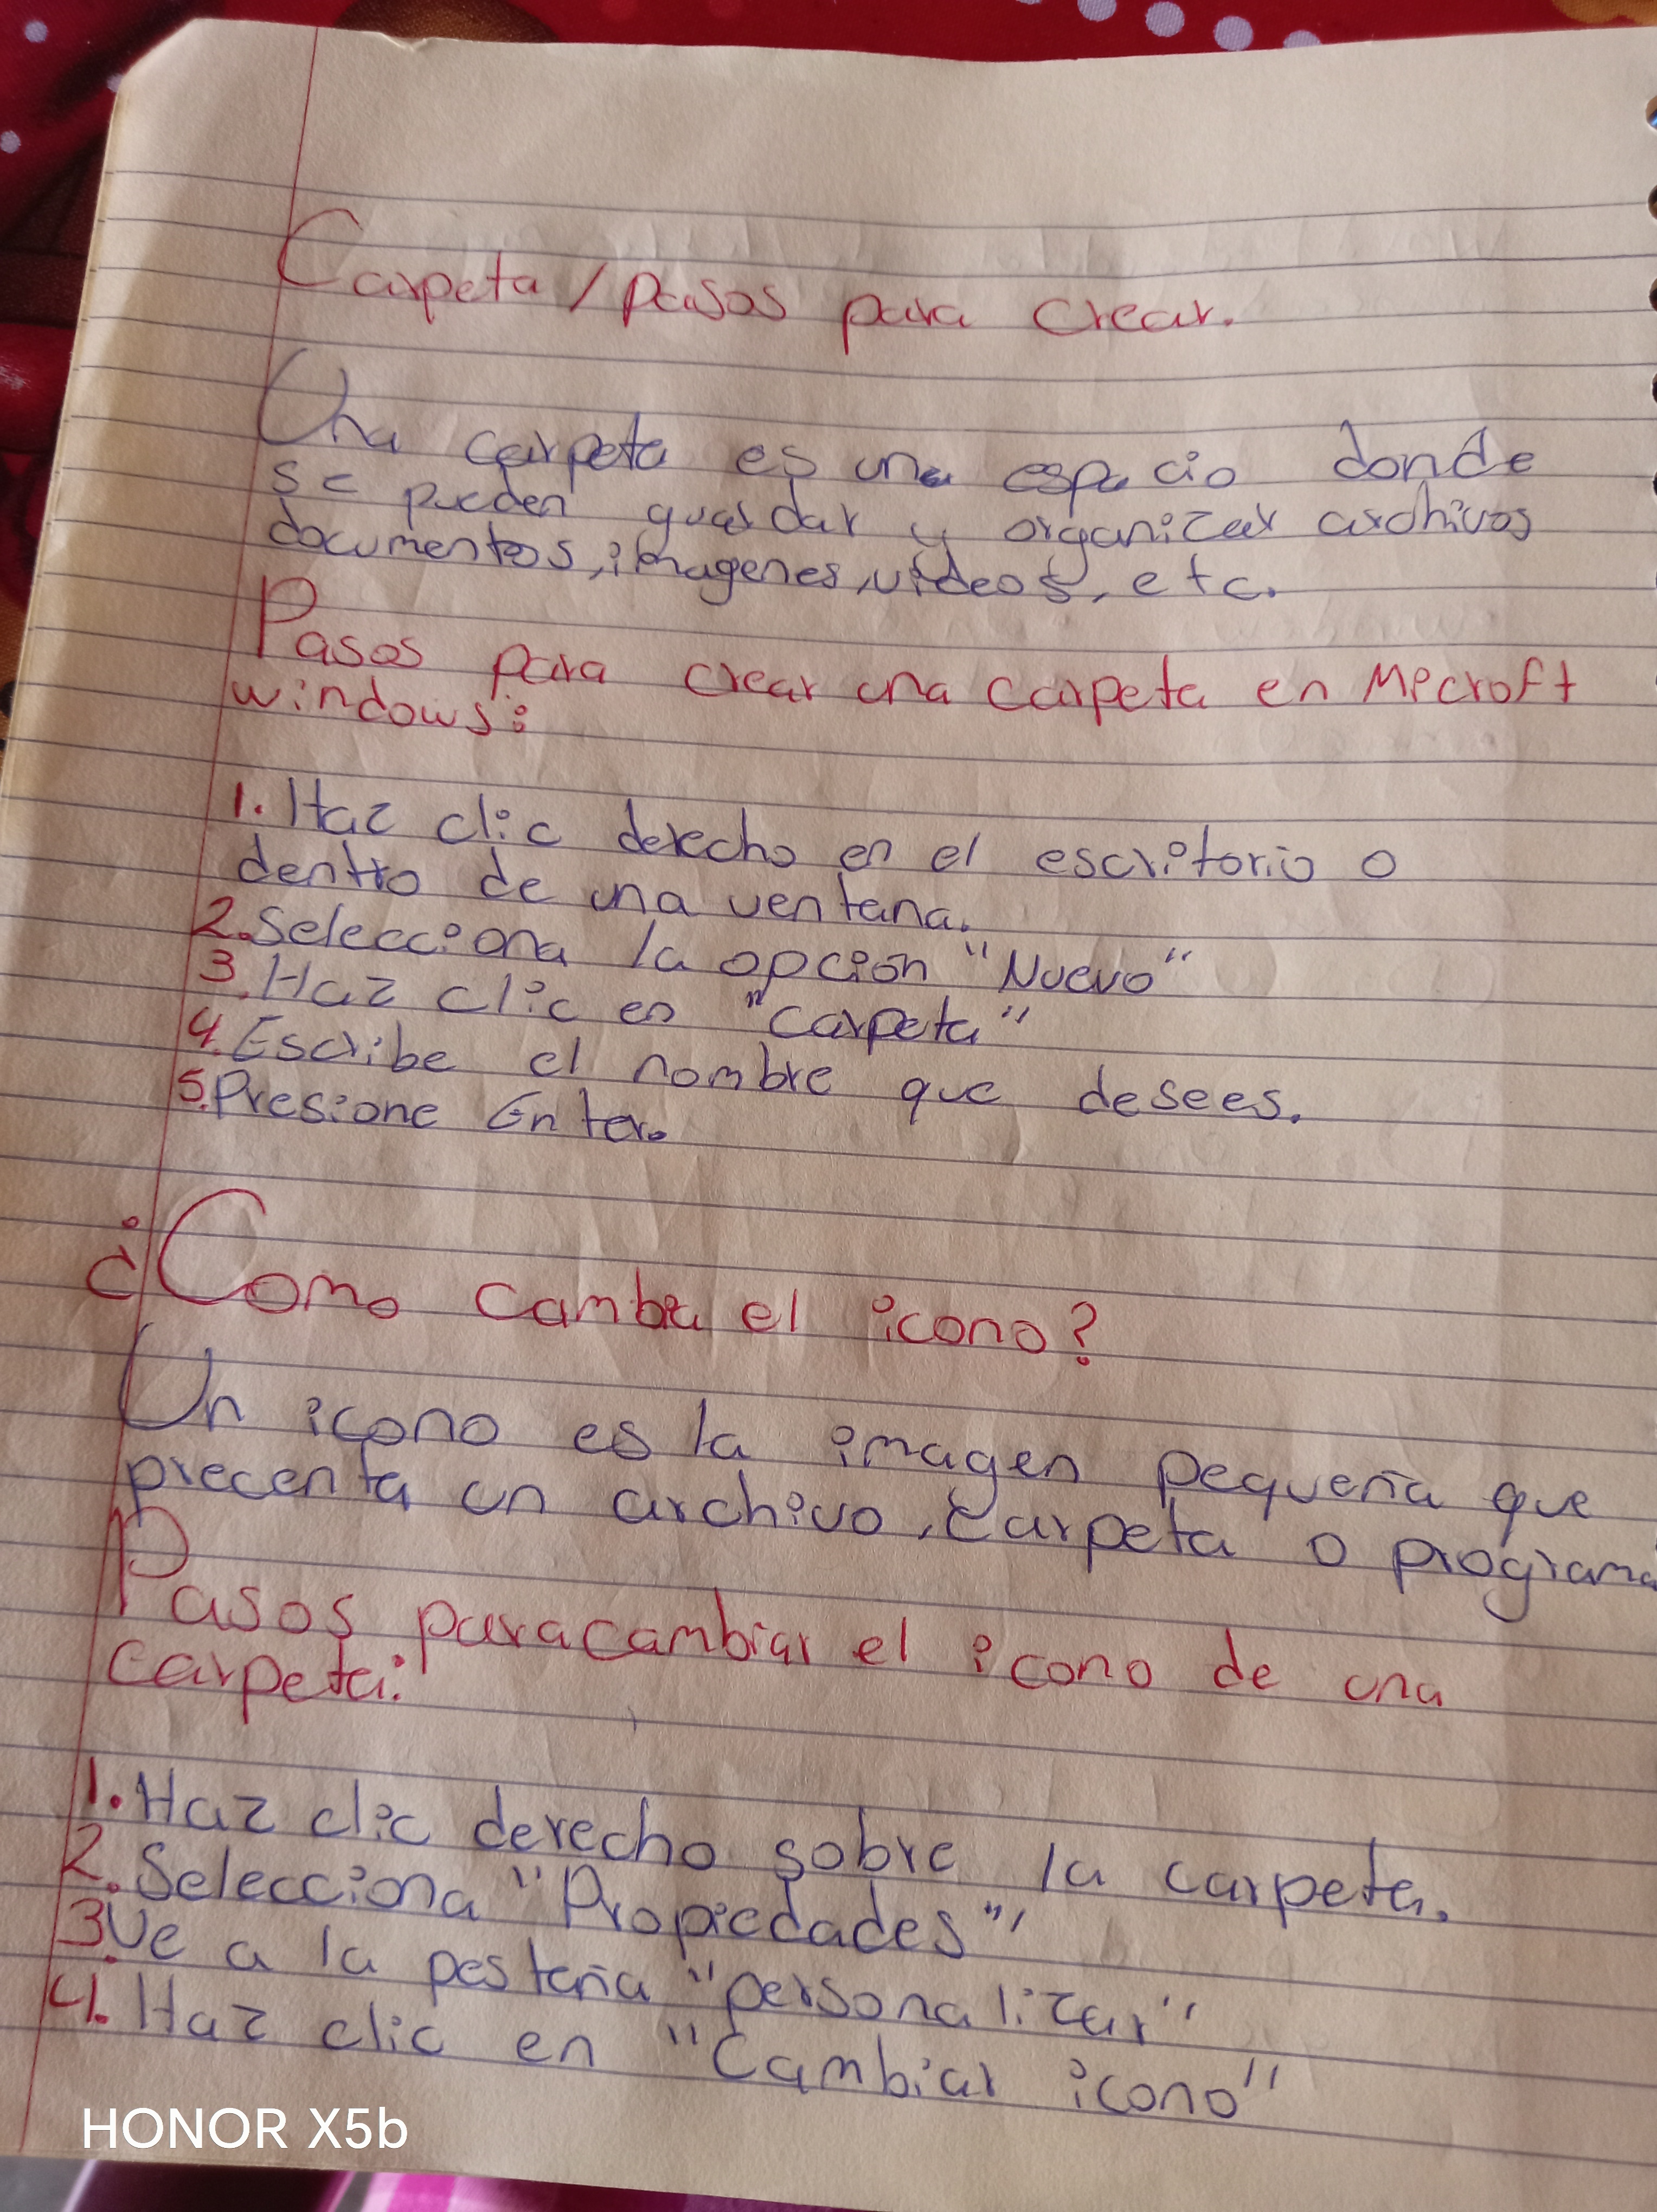 Carpeta / pasos para crear.
Una carpeta es una espacio donde
se pueden guardar y organizar archivos
documentos, imagenes, videos, etc.
Pasos para crear una carpeta en Mecroft
windows:
1. Haz clic derecho en el escritorio o
dentro de una ventana.
2. Selecciona la opción "Nuevo"
3. Haz clic en "carpeta"
4. Escribe el nombre que desees.
5. Presione Enter.
¿Como cambia el icono?
Un icono es la imagen pequeña que
precenta un archivo, carpeta o programa
Pasos para cambiar el icono de una
carpeta:
1. Haz clic derecho sobre la carpeta.
2. Selecciona "Propiedades"
3. Ve a la pestaña "personalizar"
4. Haz clic en "Cambiar icono"
HONOR X5b